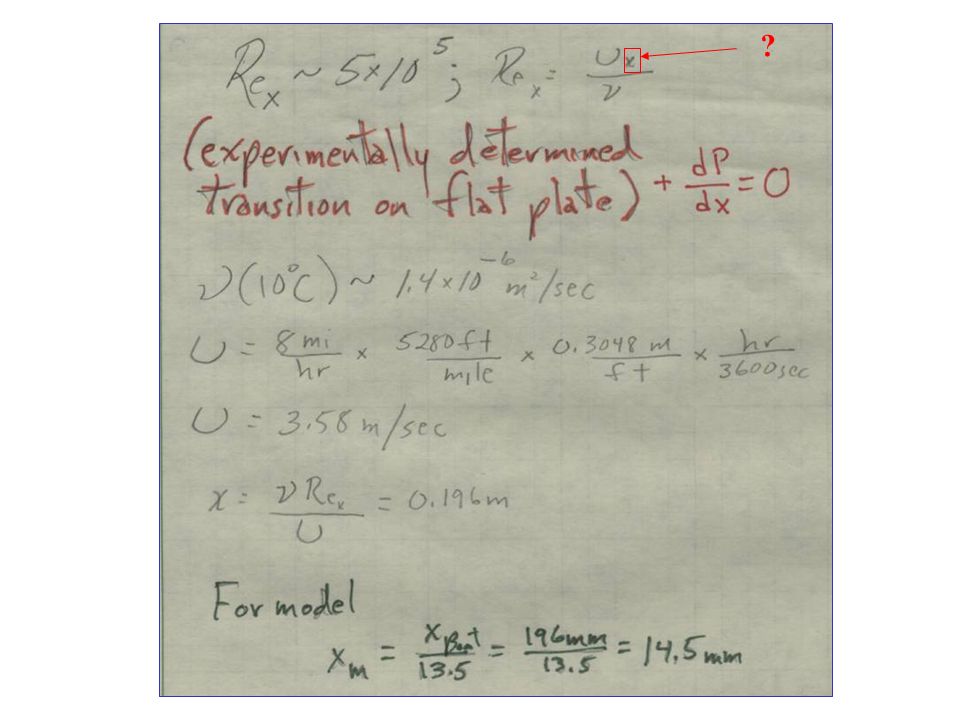 Re_x ~ 5×10^5 ; Re_x = Ux/ν ?
(experimentally determined
transition on flat plate) + dP/dx = 0
ν(10°C) ~ 1.4×10^-6 m²/sec
U = 8 mi/hr × 5280ft/mile × 0.3048 m/ft × hr/3600sec
U = 3.58 m/sec
x = ν Re_x/U = 0.196m
For model
x_m = x_Boat/13.5 = 196mm/13.5 = 14.5mm